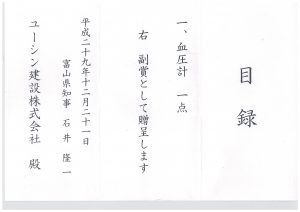 目録
一、血圧計 一点
右 副賞として贈呈します
平成二十九年十二月二十一日
富山県知事 石井隆一
ユーシン建設株式会社 殿